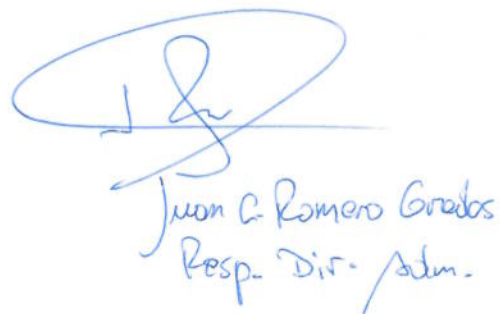 Juan C. Romero Grados
Resp. Div. Adm.